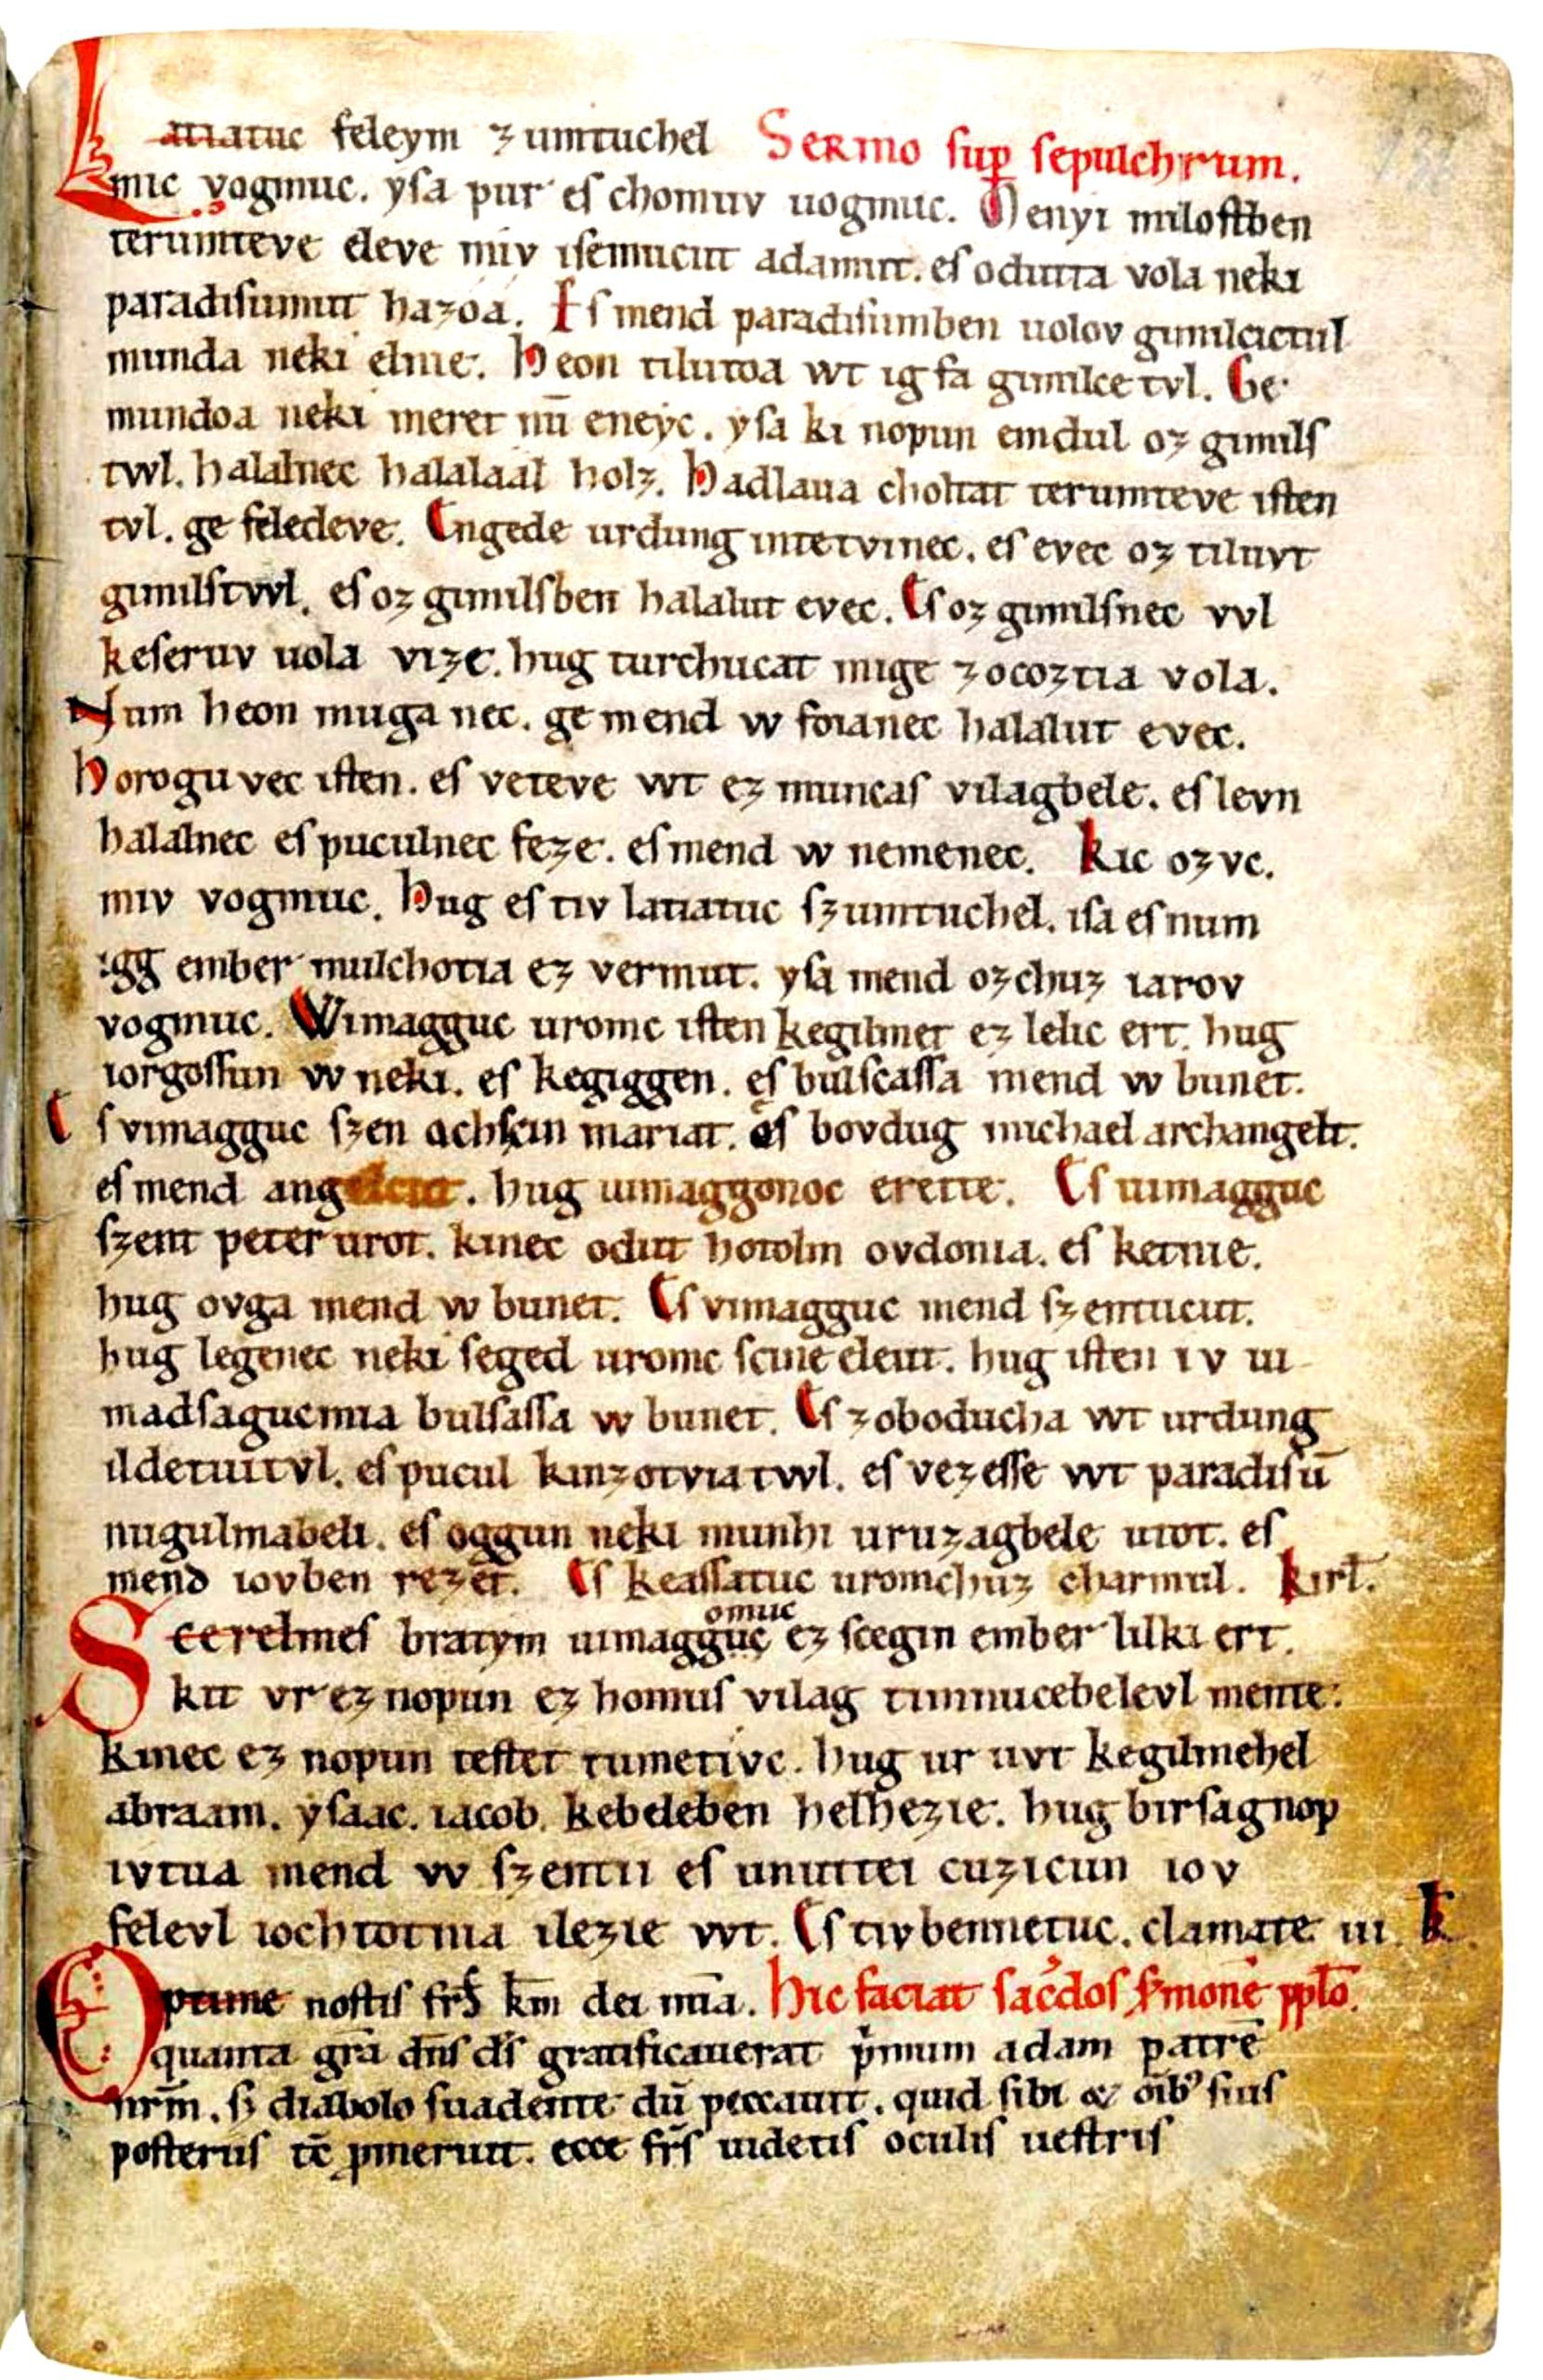 Latiatuc feleym zumtuchel Sermo sup sepulchrum.
mic vogmuc. yſa pur eſ chomuv uogmuc. Menyi miloſtben
terumteve eleve miv iſemucut adamut. eſ odutta vola neki
paradiſumut hazóá. Eſ mend paradiſumben uolov gimilcictul
munda neki elnie. Heon tilutoa wt ig fa gimilce tvl. Ge
mundoa neki meret nū eneyc. yſa ki nopun emdul oz gimilſ
twl. halalnec halaláál holz. Hadlaua choltat terumteve iſten
tvl. ge feledeve. Engede urdung intetvinec. eſ evec oz tiluvt
gimilſtwl. eſ oz gimilſben halalut evec. Eſ oz gimilſnec vvl
keſeruv uola vize. hug turchucat mige zocoztia vola.
Num heon muga nec. ge mend w foianec halalut evec.
Horogu vec iſten. eſ veteve wt ez muncaſ vilagbele. eſ levn
halalnec eſ puculnec feze. eſ mend w nemenec. Kic ozvc.
miv vogmuc. Hug eſ tiv latiatuc ſzumtuchel. iſa eſ num
igg ember mulchotia ez vermut. yſa mend ozchuz iarov
vogmuc. Wimagguc uromc iſten kegilmet ez lelic ert. hug
iorgoſſun w neki. eſ kegiggen. eſ bulſcaſſa mend w bunet.
Eſ vimagguc ſzen achſcin mariat. eſ bovdug michael archangelt.
eſ mend angelcut. hug uimaggonoc erette. Eſ uimagguc
ſzent peter urot. kinec odut hotolm ovdonia. eſ ketnie.
hug ovga mend w bunet. Eſ vimagguc mend ſzentucut.
hug legenec neki ſeged uromc ſcine eleut. hug iſten iv ui
madſagucmia bulſaſſa w bunet. Eſ zoboducha wt urdung
ildetuitvl. eſ pucul kinzotviatwl. eſ vezeſſe wt paradiſū
nugulmabeli. eſ oggun neki munhi uruzagbele utot. eſ
mend iovben rezet. Eſ keaſſatuc uromchuz charmul. Kirł.
omuc
Scerelmeſ bratym uimagguc ez ſcegin ember lilki ert.
kit vr ez nopun ez homuſ vilag timnucebelevl mente.
kinec ez nopun teſtet tumetivc. hug ur uvt kegilmehel
abraam. yſaac. iacob. kebeleben helhezie. hug birſagnop
ivtua mend w ſzentii eſ unuttei cuzicun iov
felevl iochtotnia ilezie wt. Eſ tivbennetuc. clamate iii. k̄.
Optime noſtiſ frſ km̄ dei mīa. Hic faciat ſac̓doſ ſ̓monē ppl̄o.
quanta grā dn̄ſ dſ̄ gratificauerat p̓mum adam patrē
nrm̄. ſꝫ diabolo ſuadente dū peccauit. quid ſibi & oīb⁹ ſuiſ
poſteriſ tē p̱meruit. ecce frſ̄ uidetiſ oculiſ ueſtriſ